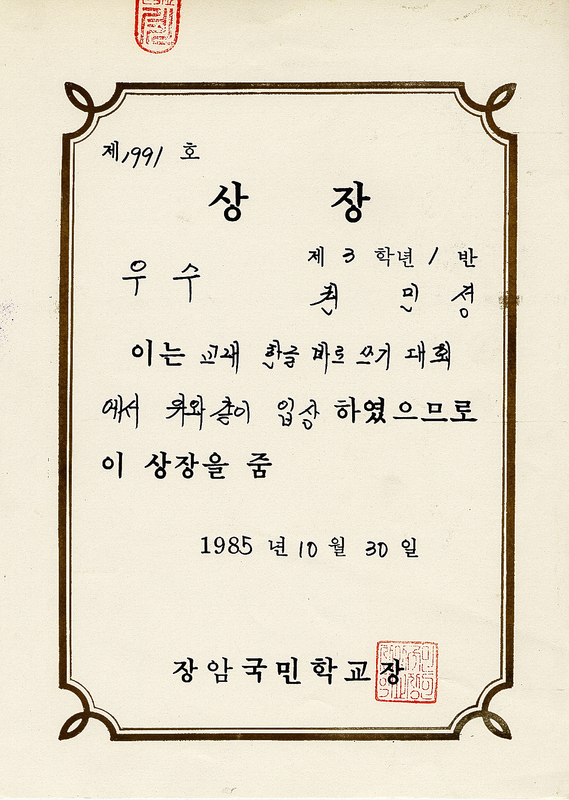 제 1991 호
상 장
제 3 학년 1 반
우 수
권 민 성
이는 교내 한글 바로 쓰기 대회
에서 위와 같이 입상 하였으므로
이 상장을 줌
1985 년 10 월 30 일
장암국민학교장